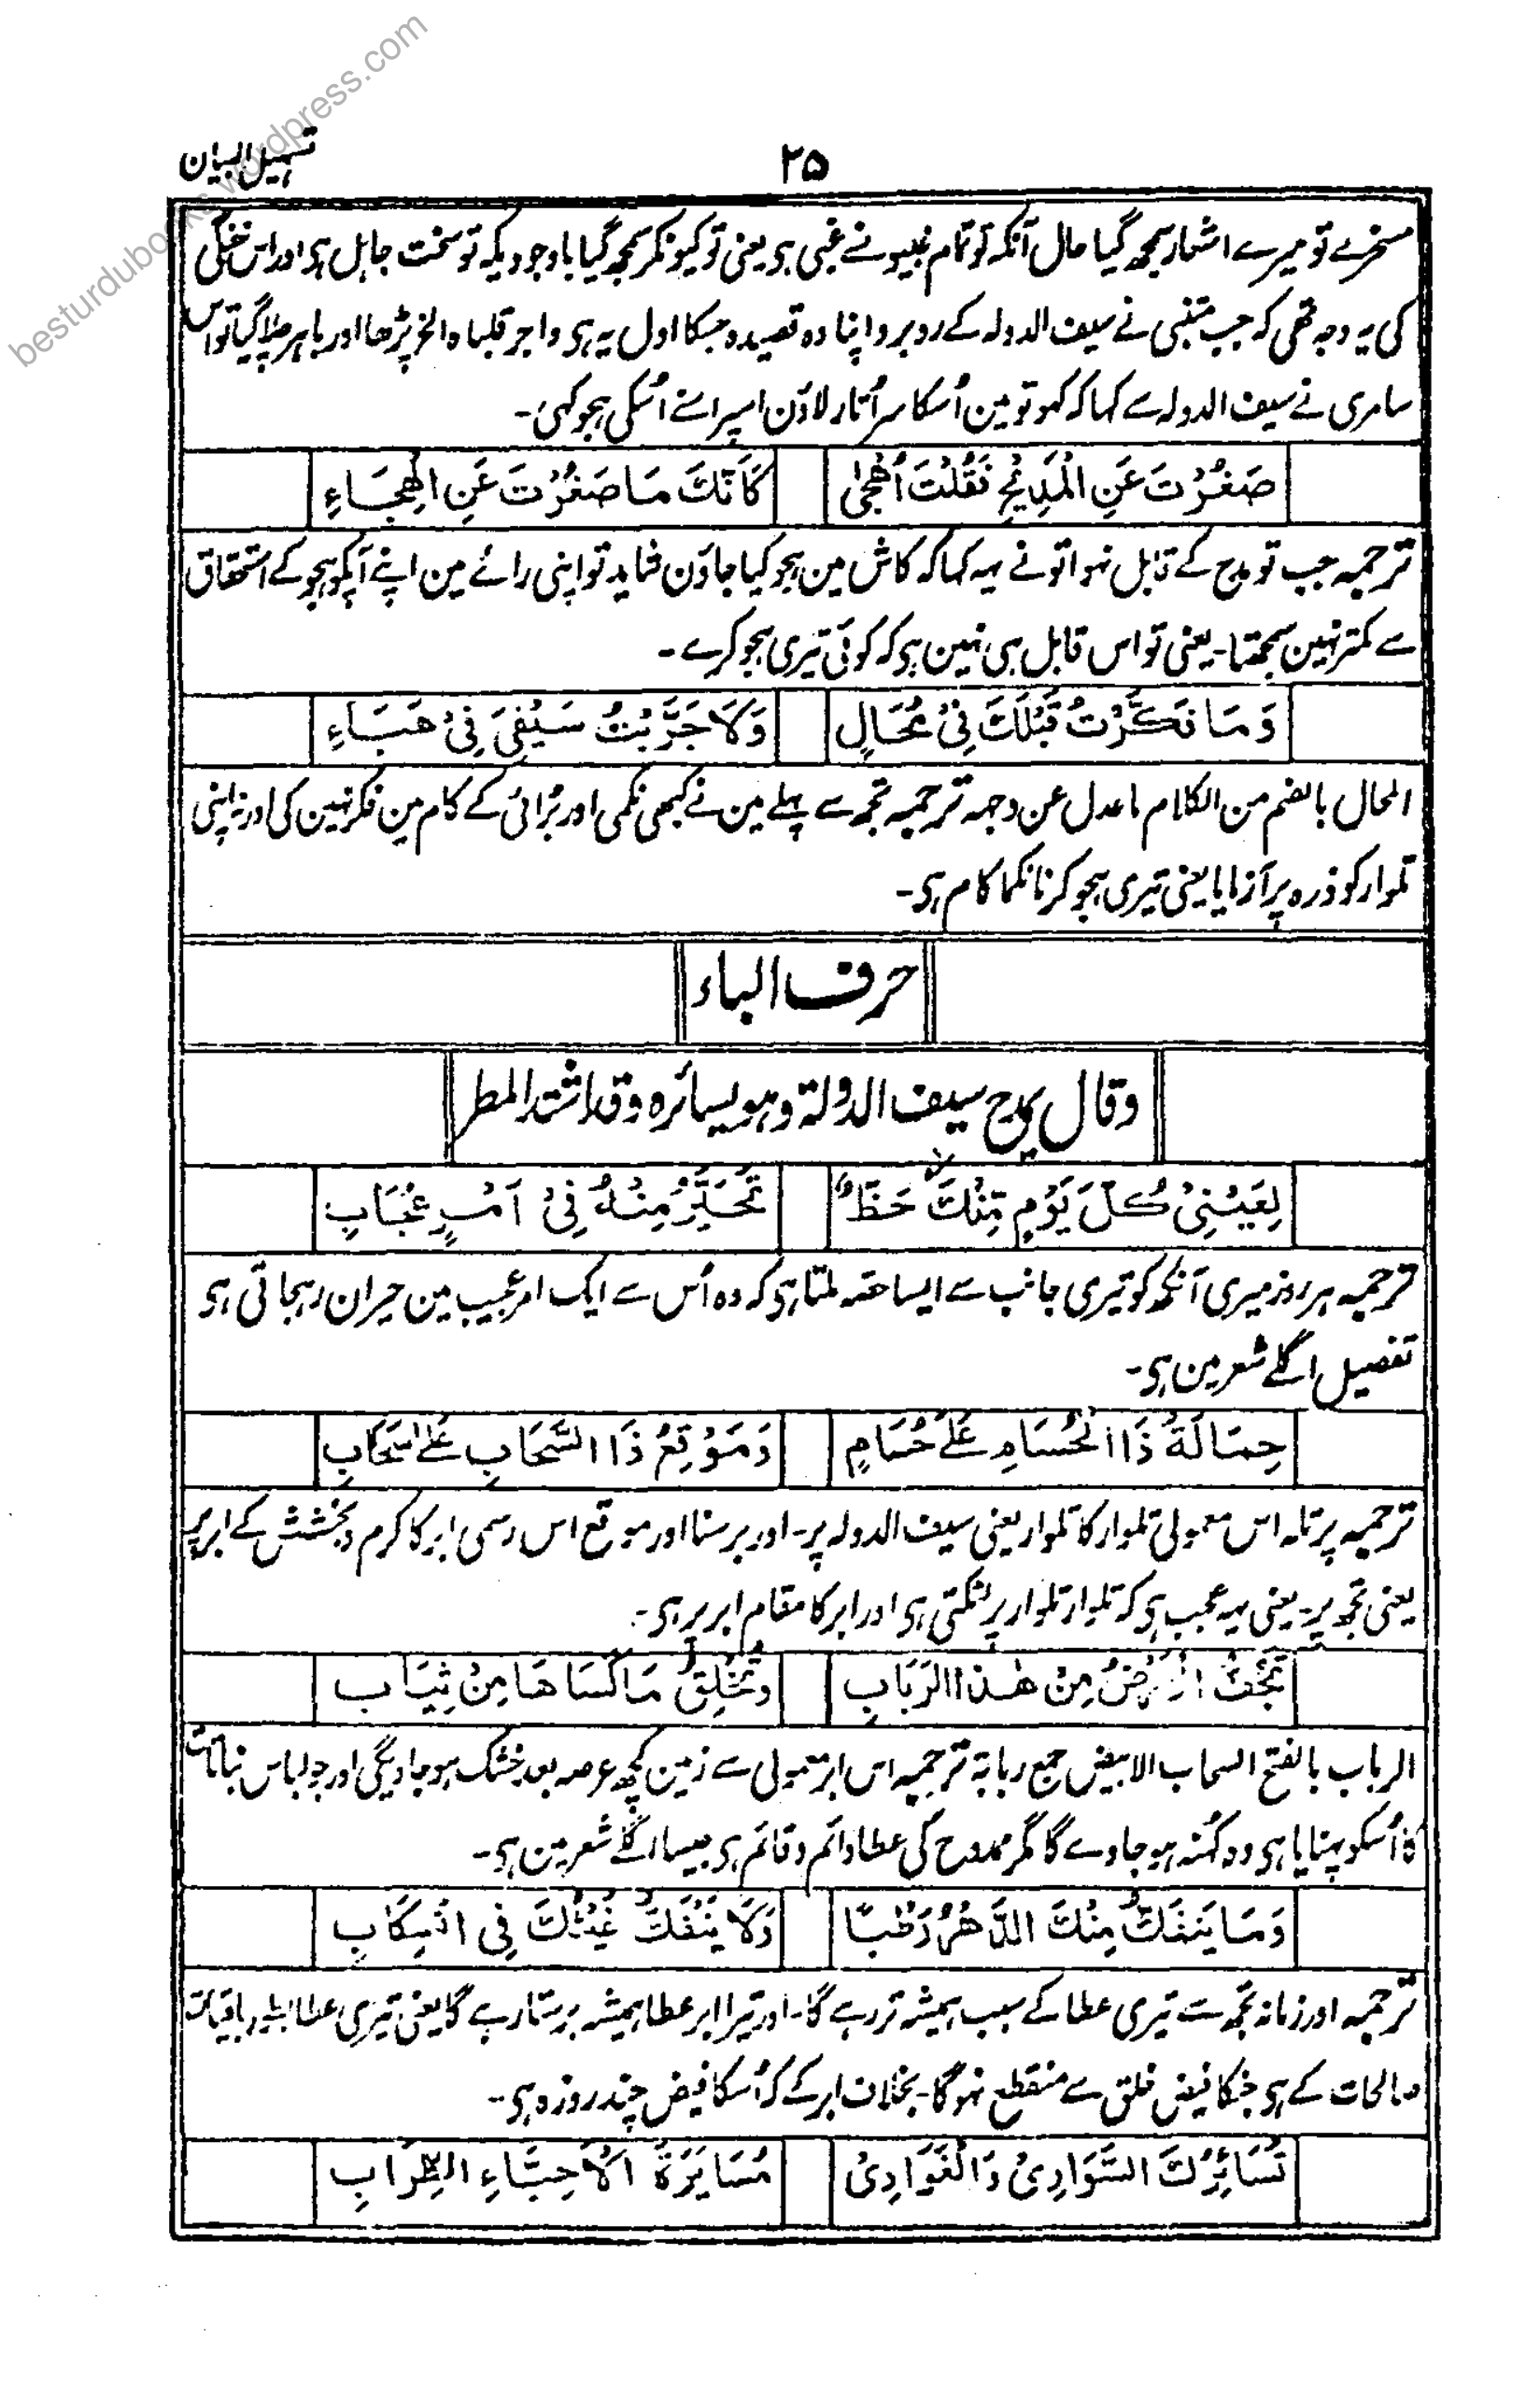 تسہیل البیان
۲۵
مسخرے تو میرے اشعار سمجھ گیا حال آنکہ تو تمام غبیونے غبی ہی یعنی تو کیونکر سمجھ گیا باوجودیکہ تو سخت جاہل ہی اور اس خفگی
کی یہ وجہ تھی کہ جب متنبی نے سیف الدولہ کے روبرو اپنا وہ قصیدہ جسکا اول یہ ہی واحر قلباہ الخ پڑھا اور باہر چلا گیا تو اس
سامری نے سیف الدولہ سے کہا کہ کہو تو مین اُسکا سر اُتار لاؤن اسپر اسنے اُسکی ہجو کہی۔
صَغُرْتَ عَنِ الْمَدِیْحِ فَقُلْتَ اُهْجٰی
کَاَنَّكَ مَا صَغُرْتَ عَنِ الْهِجَاءِ
ترجمہ جب تو مدح کے قابل نہوا تو نے یہہ کہا کہ کاش مین ہجو کیا جاؤن شاید تو اپنی رائے مین اپنے آپکو ہجو کے استحقاق
سے کمتر نہین سمجھتا۔ یعنی تو اس قابل ہی نہین ہی کہ کوئی تیری ہجو کرے۔
وَمَا فَکَّرْتُ قَبْلَكَ فِیْ مُحَالٍ
وَلَا جَرَّبْتُ سَیْفِیَ فِیْ هَبَاءِ
المحال بالضم من الکلام ما عدل عن وجہہ ترجمہ تجھ سے پہلے مین نے کبھی نکمی اور بُرائی کے کام مین فکر نہین کی اور نہ اپنی
تلوار کو ذرہ پر آزمایا یعنی تیری ہجو کرنا نکما کام ہی۔
حرف الباء
وقال یمدح سیف الدولة وہو یسائرہ وقد اشتد المطر
لِعَیْنِیْ کُلَّ یَوْمٍ مِّنْكَ حَظٌّ
تَحَیَّرُ مِنْهُ فِیْ اَمْرٍ عُجَابِ
ترجمہ ہر روز میری آنکھ کو تیری جانب سے ایسا حصہ ملتا ہی کہ وہ اُس سے ایک امر عجیب مین حیران رہجاتی ہی
تفصیل اگلے شعر مین ہی۔
حِمَالَةُ ذَا الْحُسَامِ عَلٰی حُسَامٍ
وَمَوْقِعُ ذَا السَّحَابِ عَلٰی سَحَابِ
ترجمہ پرتلہ اس معمولی تلوار کا تلوار یعنی سیف الدولہ پر۔ اور برسنا اور موقع اس رسمی ابر کا کرم و بخشش کے ابر پر
یعنی تجھ پر۔ یعنی یہہ عجب ہی کہ تلوار تلوار پر لٹکتی ہی اور ابر کا مقام ابر پر ہی۔
تَجِفُّ الْاَرْضُ مِنْ هٰذَا الرَّبَابِ
وَتُخْلِقُ مَا کَسَاهَا مِنْ ثِیَابِ
الرباب بالفتح السحاب الابیض جمع ربابۃ ترجمہ اس ابر معمولی سے زمین کچھ عرصہ بعد خشک ہو جاویگی اور جو لباس نباتات
کا اُسکو پہنایا ہی وہ کُہنہ ہو جاوے گا مگر ممدوح کی عطا دائم و قائم ہی جیسا اگلے شعر مین ہی۔
وَمَا یَنْفَكُّ مِنْكَ الدَّهْرُ رَطْبًا
وَلَا یَنْفَكُّ غَیْثُكَ فِی انْسِکَابِ
ترجمہ اور زمانہ تجھ سے تیری عطا کے سبب ہمیشہ تر رہے گا۔ اور تیرا ابر عطا ہمیشہ برستا رہے گا یعنی تیری عطا بطور باقیات
صالحات کے ہی جنکا فیض خلق سے منقطع نہوگا۔ بخلاف ابر کے کہ اُسکا فیض چند روزہ ہی۔
تُسَائِرُكَ السَّوَارِیْ وَالْغَوَادِیْ
مُسَایَرَةَ الْاَحِبَّاءِ الطِّرَابِ
besturdubooks.wordpress.com